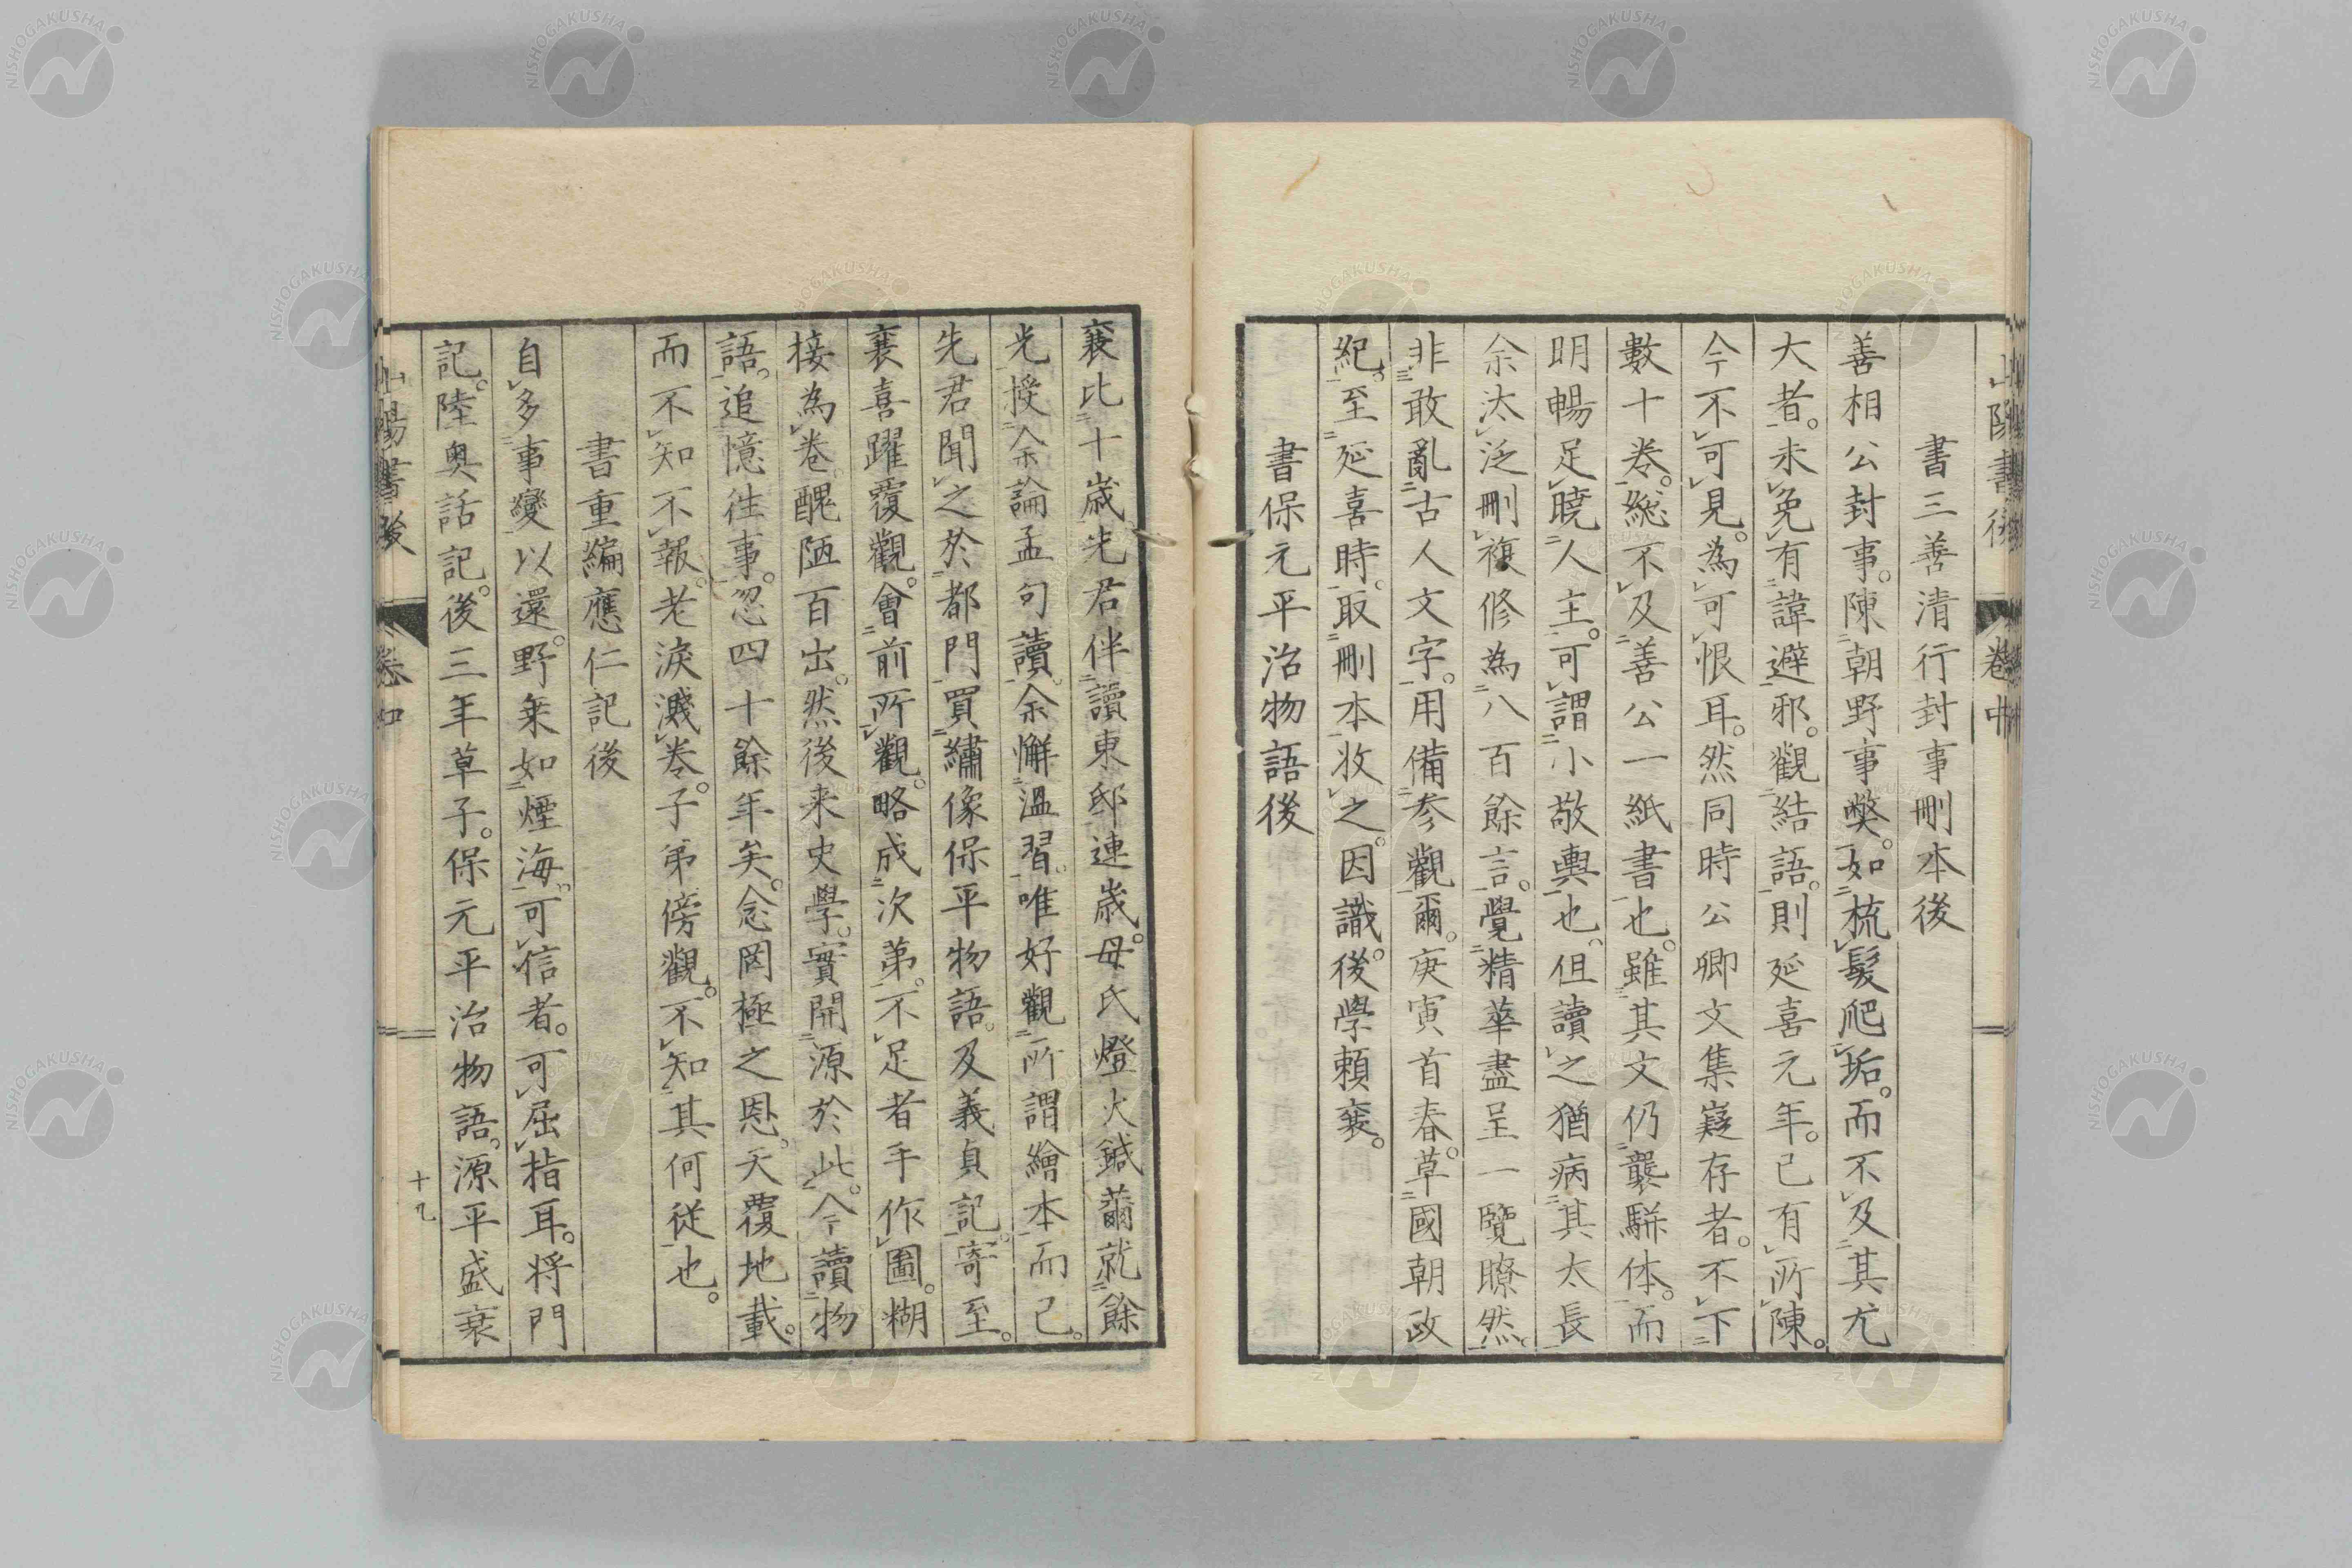 書三善清行封事刪本後
善相公封事。陳朝野事獘。如梳髮爬垢。而不及其尤
大者。未免有諱避邪。觀結語。則延喜元年。已有所陳。
今不可見。為可恨耳。然同時公卿文集嶷存者。不下
數十卷。総不及善公一紙書也。雖其文仍襲駢体。而
明暢足曉人主。可謂小敬輿也。但讀之猶病其太長
余汰泛刪複修為八百餘言。覺精華盡呈一覽瞭然。
非敢亂古人文字。用備参觀爾。庚寅首春。草國朝政
紀。至延喜時。取刪本收之。因識。後學頼襄。
書保元平治物語後
襄比十歳先君伴讀東邸連歳。母氏燈火鍼黹就餘
光授余論孟句讀。余懈溫習。唯好觀所謂繪本而已。
先君聞之於都門買繡像保平物語。及義貞記。寄至。
襄喜躍覆觀。會前所觀。略成次第。不足者手作圖。糊
接為卷。醜陋百出。然後来史學。實開源於此。今讀物
語。追憶徃事。忽四十餘年矣。念罔極之恩。天覆地載。
而不知不報。老淚濺卷。子弟傍觀。不知其何從也。
書重編應仁記後
自多事變以還。野乗如煙海。可信者。可屈指耳。将門
記。陸奥話記。後三年草子。保元平治物語。源平盛衰
山陽書後 卷中
十九
NISHOGAKUSHA